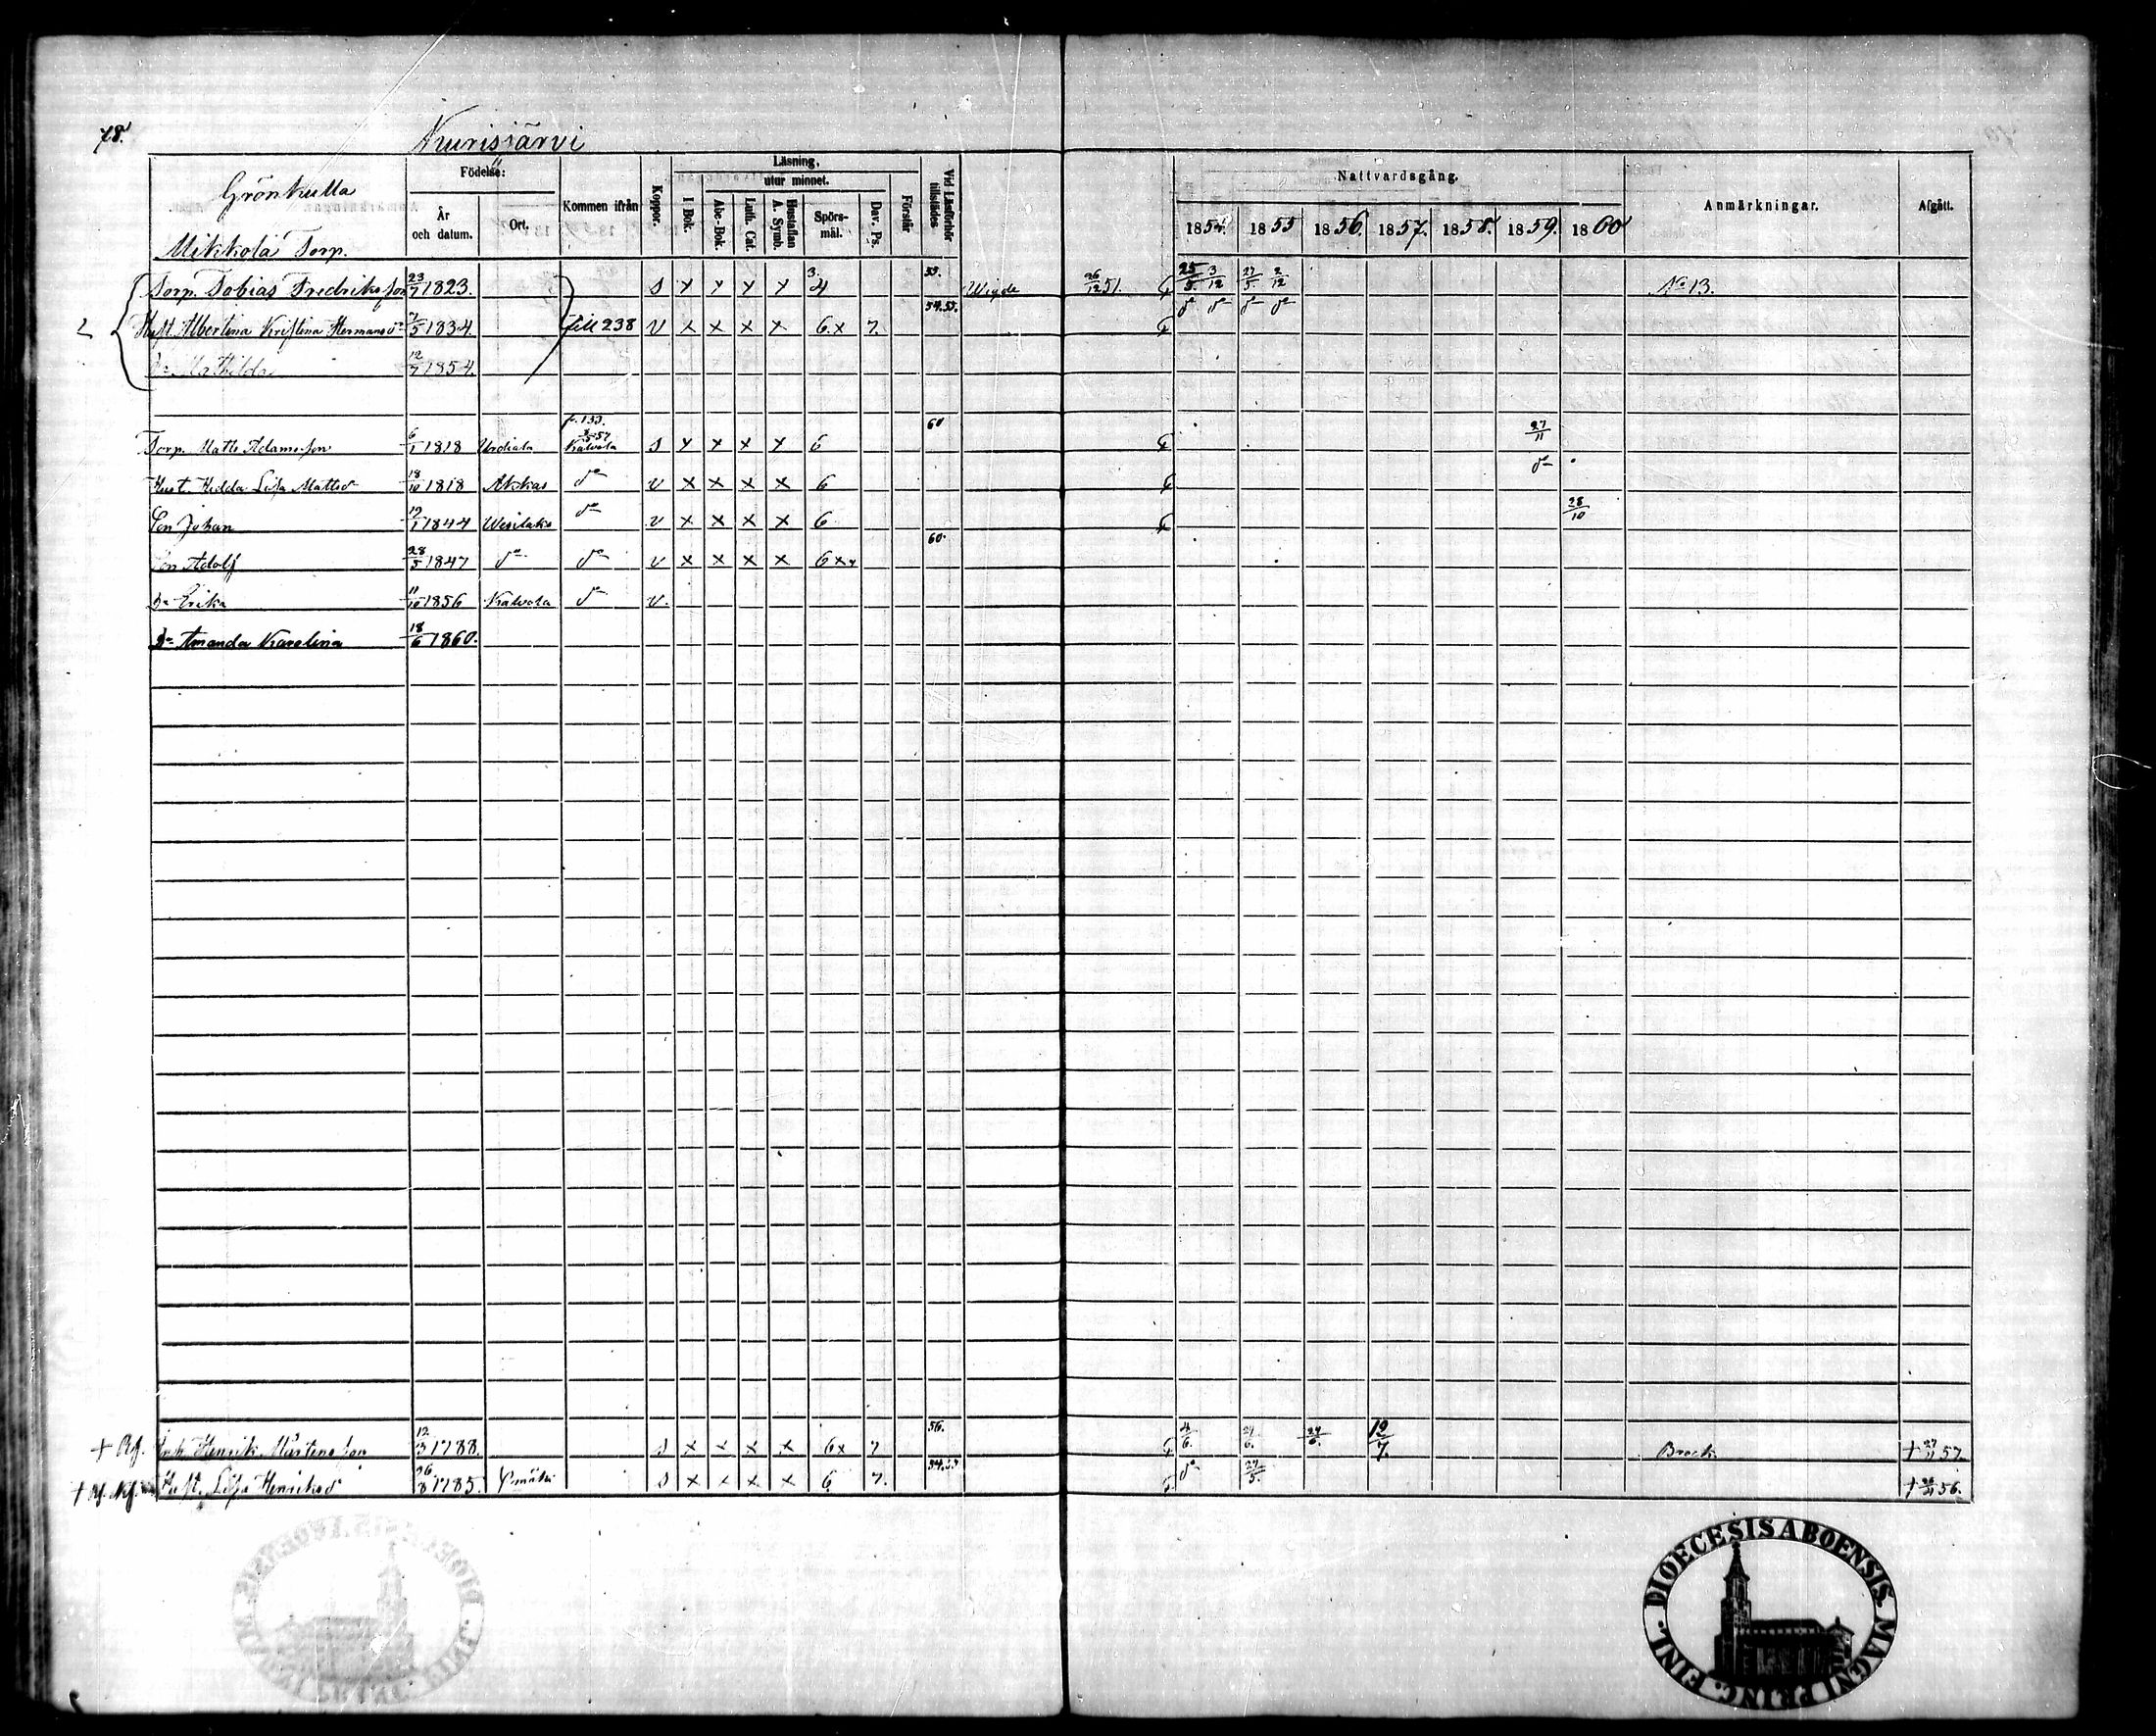 78.
Nuurisjärvi
Grönkulla
Mikkola Torp.
Födelse:
År och datum.
Ort.
Kommen ifrån
Koppor.
Läsning,
utur minnet.
I Bok.
Abc-Bok.
Luth. Cat.
Hustaflan A. Symb.
Spörs-mål.
Dav. Ps.
Förstår
Vid Läsförhör tillstädes
Nattvardsgång.
1854. 1855 1856. 1857. 1858. 1859. 1860
Anmärkningar.
Afgått.
Torp. Tobias Fredriksson 23/7 1823. s x x x x 3. 4 Wigde 26/12 51. 25/5 3/12 27/5 2/12 No 13.
2 Hust. Albertina Kristina Hermansd 7/5 1834. till 238 v x x x x 6.x 7. 54.55. do do do do
Dr Mathilda 12/7 1854.
Torp. Matts Adamsson 6/1 1818 Urdiala Kalvola s x x x x 6 60 27/11
Hust. Hedda Lisa Mattsd 18/10 1818 Akkas do v x x x x 6 do
Son Johan 1844 Wesilaks do v x x x x 6 28/10
Son Adolf 28/5 1847 do do v x x x x 6xx 60.
Dr Erika 11/10 1856 Kalvola do v.
Dr Amanda Karolina 18/6 1860.
+ Henrik Mårtensson 12/3 1788. s x x x x 6x 7 56. 24/6. 12/7. + 57.
+ Hust. Lisa Henriksd 26/8 1785. s x x x x 6 7. do 27/5. + 56.
DIOECESIS ABOENSIS. MAGNI PRINC. FINL.